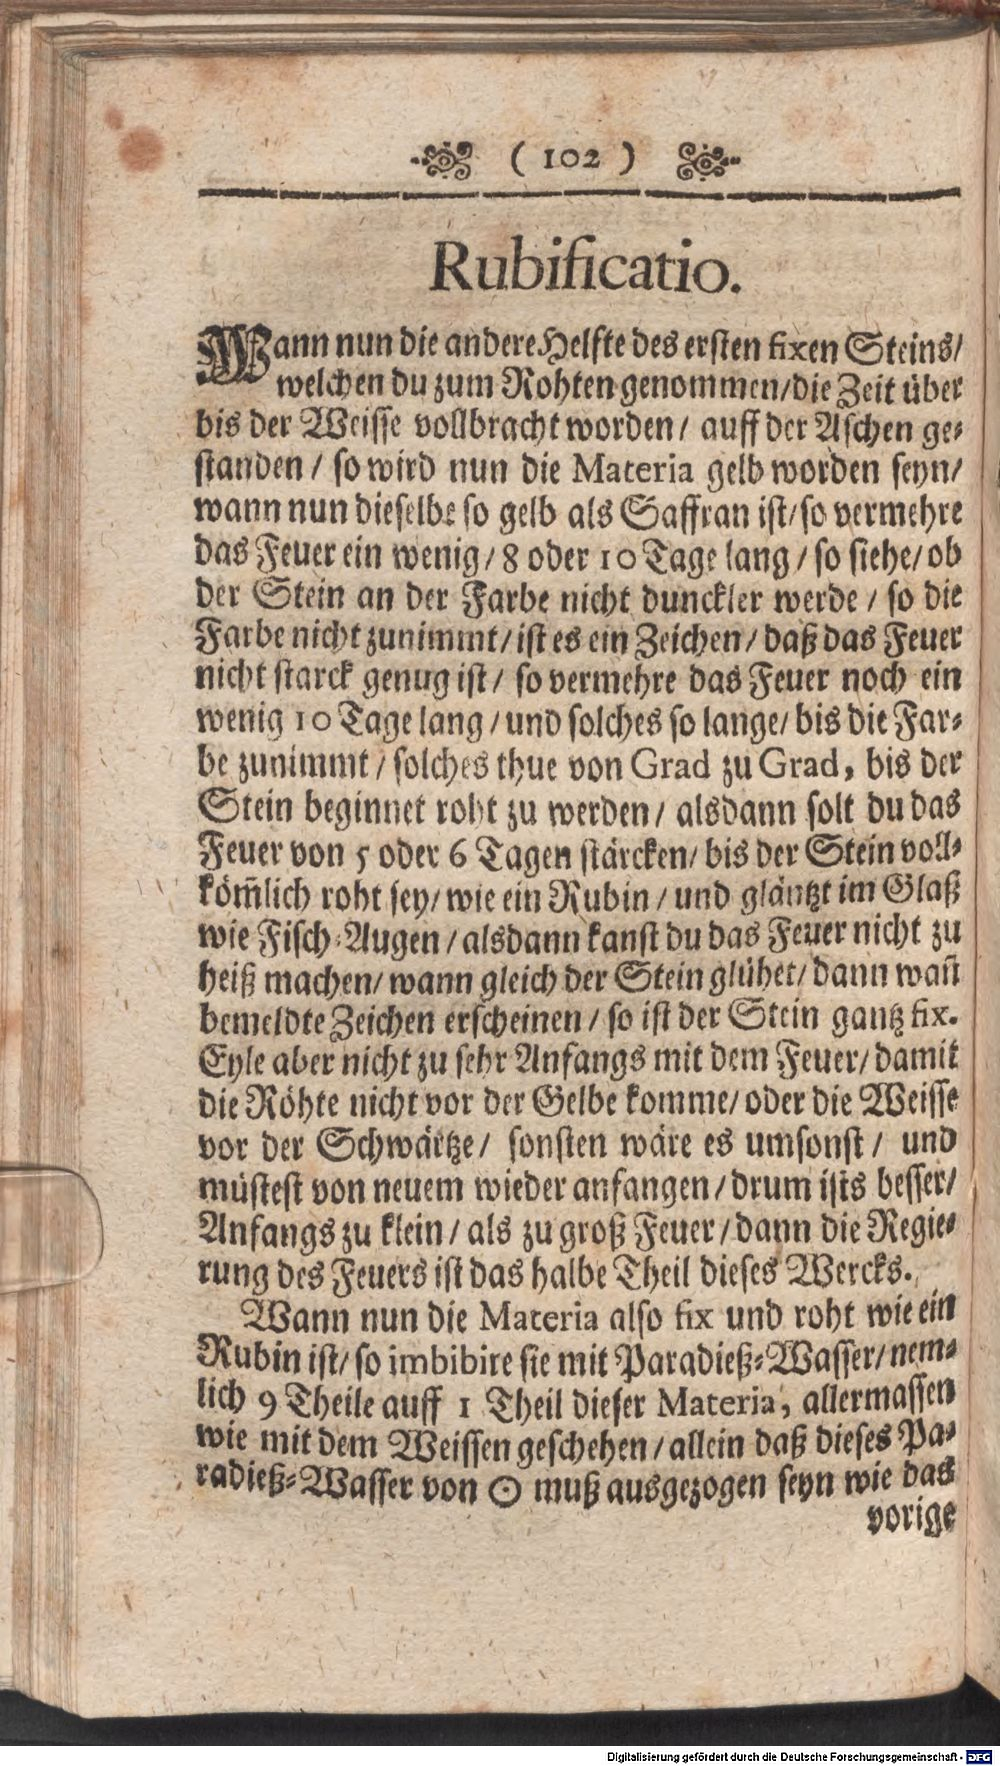 ( 102 )
Rubificatio.
Wann nun die andere Helfte des ersten fixen Steins/
welchen du zum Rohten genommen/die Zeit über
bis der Weisse vollbracht worden/ auff der Aschen ge-
standen / so wird nun die Materia gelb worden seyn/
wann nun dieselbe so gelb als Saffran ist/so vermehre
das Feuer ein wenig/ 8 oder 10 Tage lang / so siehe/ ob
der Stein an der Farbe nicht dunckler werde / so die
Farbe nicht zunimmt/ ist es ein Zeichen/ daß das Feuer
nicht starck genug ist/ so vermehre das Feuer noch ein
wenig 10 Tage lang / und solches so lange/ bis die Far-
be zunimmt / solches thue von Grad zu Grad, bis der
Stein beginnet roht zu werden/ alsdann solt du das
Feuer von 5 oder 6 Tagen stärcken/ bis der Stein voll-
köm̃lich roht sey/ wie ein Rubin / und gläntzt im Glaß
wie Fisch-Augen / alsdann kanst du das Feuer nicht zu
heiß machen/ wann gleich der Stein glühet/ dann wañ
bemeldte Zeichen erscheinen / so ist der Stein gantz fix.
Eyle aber nicht zu sehr Anfangs mit dem Feuer/ damit
die Röhte nicht vor der Gelbe komme/ oder die Weisse
vor der Schwärtze/ sonsten wäre es umsonst / und
müstest von neuem wieder anfangen / drum ists besser/
Anfangs zu klein / als zu groß Feuer / dann die Regie-
rung des Feuers ist das halbe Theil dieses Wercks.
Wann nun die Materia also fix und roht wie ein
Rubin ist/ so imbibire sie mit Paradieß-Wasser/ nem-
lich 9 Theile auff 1 Theil dieser Materia, allermassen
wie mit dem Weissen geschehen / allein daß dieses Pa-
radieß-Wasser von ☉ muß ausgezogen seyn wie das
vorige
Digitalisierung gefördert durch die Deutsche Forschungsgemeinschaft - DFG